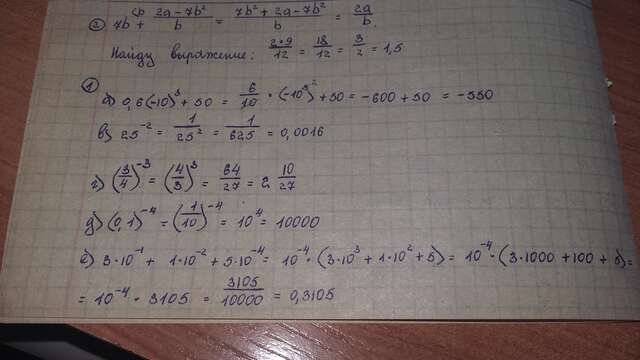 ② 7b + (b) (2a-7b²)/b = (7b² + 2a - 7b²)/b = 2a/b.
Найду выражение: (2*9)/12 = 18/12 = 3/2 = 1,5
①
б) 0,6(-10)³ + 50 = 6/10 * (-10³²) + 50 = -600 + 50 = -550
в) 25⁻² = 1/25² = 1/625 = 0,0016
г) (3/4)⁻³ = (4/3)³ = 64/27 = 2 10/27
д) (0,1)⁻⁴ = (1/10)⁻⁴ = 10⁴ = 10000
е) 3·10⁻¹ + 1·10⁻² + 5·10⁻⁴ = 10⁻⁴ * (3·10³ + 1·10² + 5) = 10⁻⁴ * (3·1000 + 100 + 5) =
= 10⁻⁴ * 3105 = 3105/10000 = 0,3105